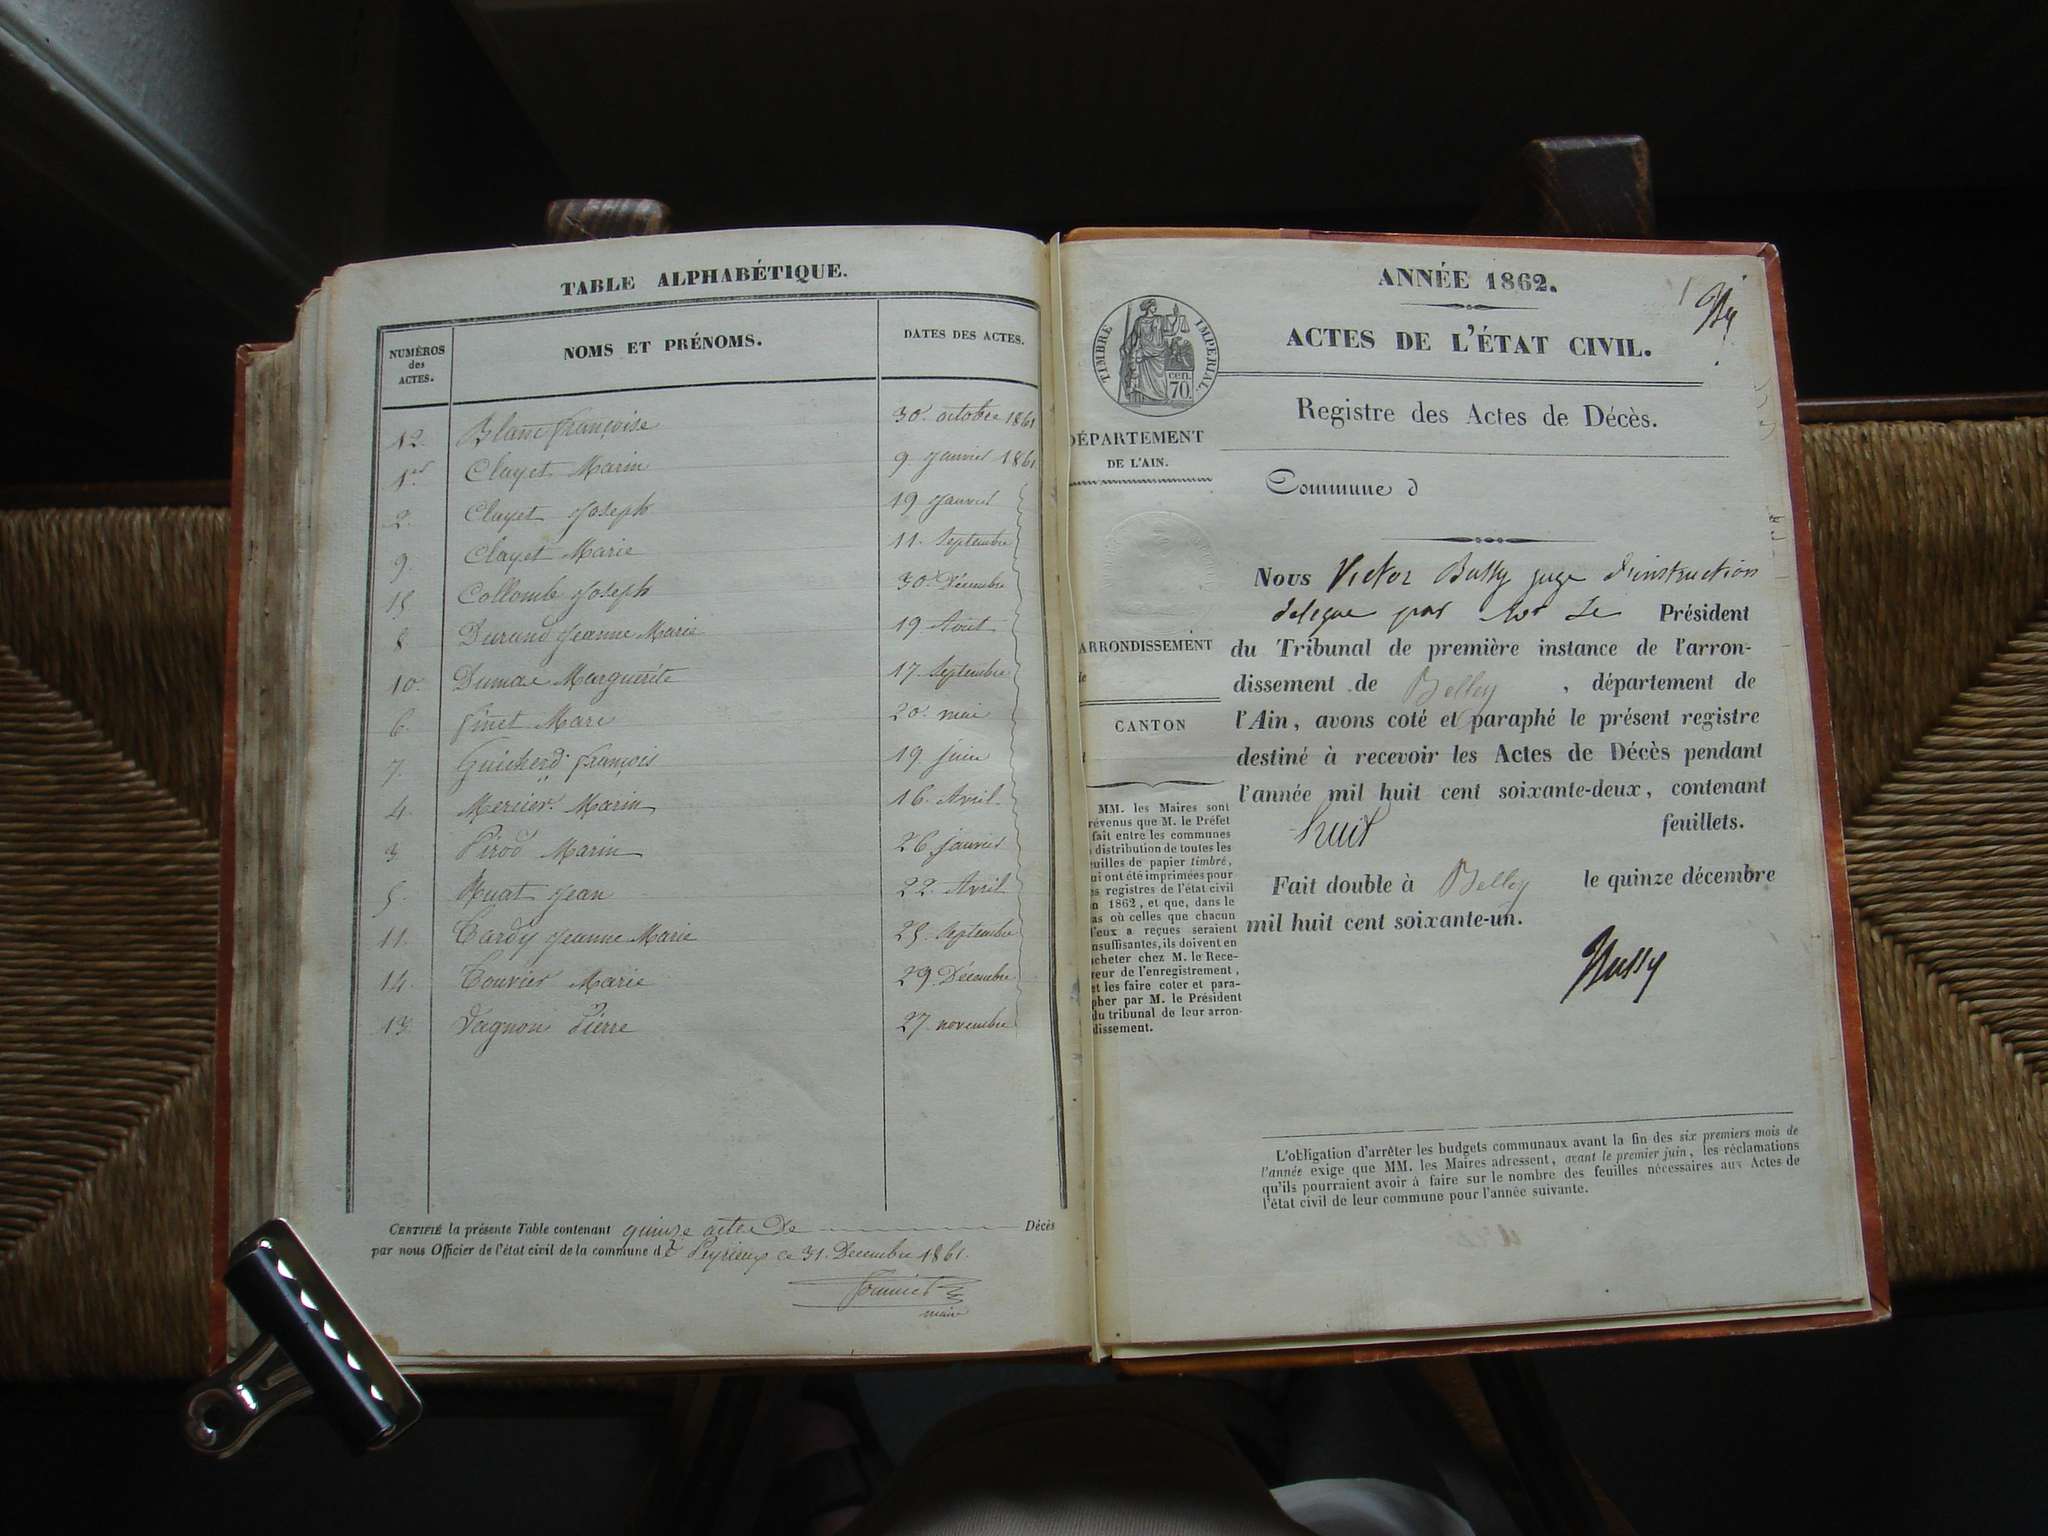 TABLE ALPHABÉTIQUE.
NUMÉROS des ACTES.
NOMS ET PRÉNOMS.
DATES DES ACTES.
12. Blanc françoise 30. octobre 1861
1er Clayet Marin 9 janvier 1861
2. Clayet Joseph 19 Janvier
9. Clayet Marie 11. Septembre
15 Collomb Joseph 30 Décembre
8 Durand Jeanne Marie 19 Aout
10. Dumas Marguerite 17. Septembre
6. finet Marc 20. mai
7. Guicherd françois 19 juin
4. Mercier Marin 16. Avril
3 Pirod Marin 26 janvier
5. Ruat Jean 22. Avril
11. Tardy Jeanne Marie 25. Septembre
14. Touvier Marie 29. Décembre
13. Vagnon Pierre 27. novembre
CERTIFIÉ la présente Table contenant quinze actes De Décès
par nous Officier de l'état civil de la commune d e Peyrieux ce 31. Decembre 1861.
maire
ANNÉE 1862.
ACTES DE L'ÉTAT CIVIL.
TIMBRE IMPÉRIAL.
cen. 70.
Registre des Actes de Décès.
DÉPARTEMENT
DE L'AIN.
Commune d
ARRONDISSEMENT
CANTON
MM. les Maires sont
révenus que M. le Préfet
fait entre les communes
distribution de toutes les
euilles de papier timbré,
ui ont été imprimées pour
es registres de l'état civil
n 1862, et que, dans le
as où celles que chacun
d'eux a reçues seraient
nsuffisantes, ils doivent en
cheter chez M. le Rece-
eur de l'enregistrement,
et les faire coter et para-
pher par M. le Président
du tribunal de leur arron-
dissement.
Nous Victor Bussy juge d'instruction
delegue par Mr Le Président
du Tribunal de première instance de l'arron-
dissement de Belley, département de
l'Ain, avons coté et paraphé le présent registre
destiné à recevoir les Actes de Décès pendant
l'année mil huit cent soixante-deux, contenant
huit feuillets.
Fait double à Belley le quinze décembre
mil huit cent soixante-un.
Bussy
L'obligation d'arrêter les budgets communaux avant la fin des six premiers mois de
l'année exige que MM. les Maires adressent, avant le premier juin, les réclamations
qu'ils pourraient avoir à faire sur le nombre des feuilles nécessaires aux Actes de
l'état civil de leur commune pour l'année suivante.